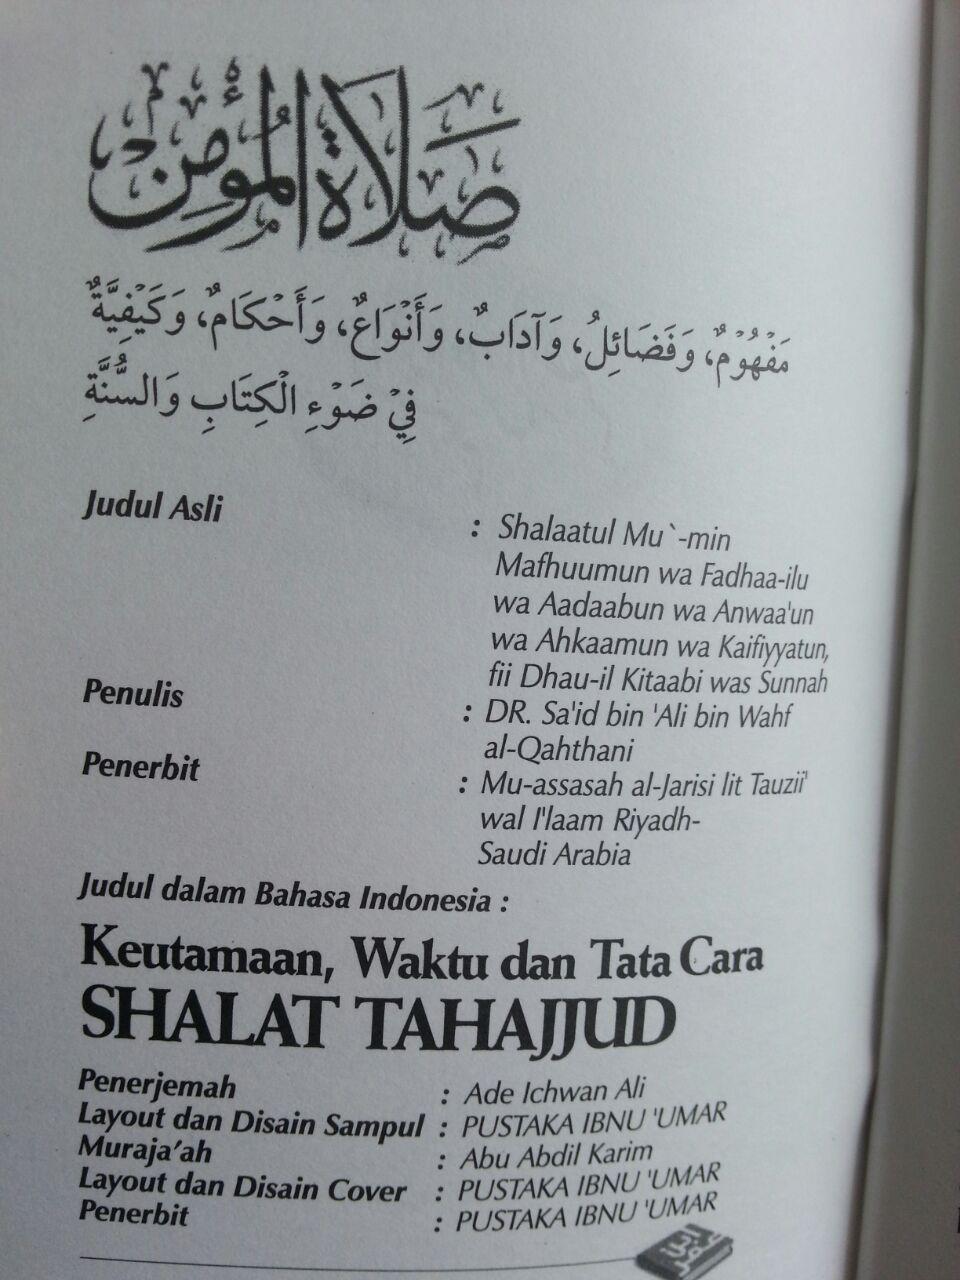 صَلَاةُ الْمُؤْمِنِ
مَفْهُوْمٌ، وَفَضَائِلُ، وَآدَابٌ، وَأَنْوَاعٌ، وَأَحْكَامٌ، وَكَيْفِيَّةٌ
فِيْ ضَوْءِ الْكِتَابِ وَالسُّنَّةِ
Judul Asli : Shalaatul Mu`-min
Mafhuumun wa Fadhaa-ilu
wa Aadaabun wa Anwaa'un
wa Ahkaamun wa Kaifiyyatun,
fii Dhau-il Kitaabi was Sunnah
Penulis : DR. Sa'id bin 'Ali bin Wahf
al-Qahthani
Penerbit : Mu-assasah al-Jarisi lit Tauzii'
wal I'laam Riyadh-
Saudi Arabia
Judul dalam Bahasa Indonesia :
Keutamaan, Waktu dan Tata Cara
SHALAT TAHAJJUD
Penerjemah : Ade Ichwan Ali
Layout dan Disain Sampul : PUSTAKA IBNU 'UMAR
Muraja'ah : Abu Abdil Karim
Layout dan Disain Cover : PUSTAKA IBNU 'UMAR
Penerbit : PUSTAKA IBNU 'UMAR